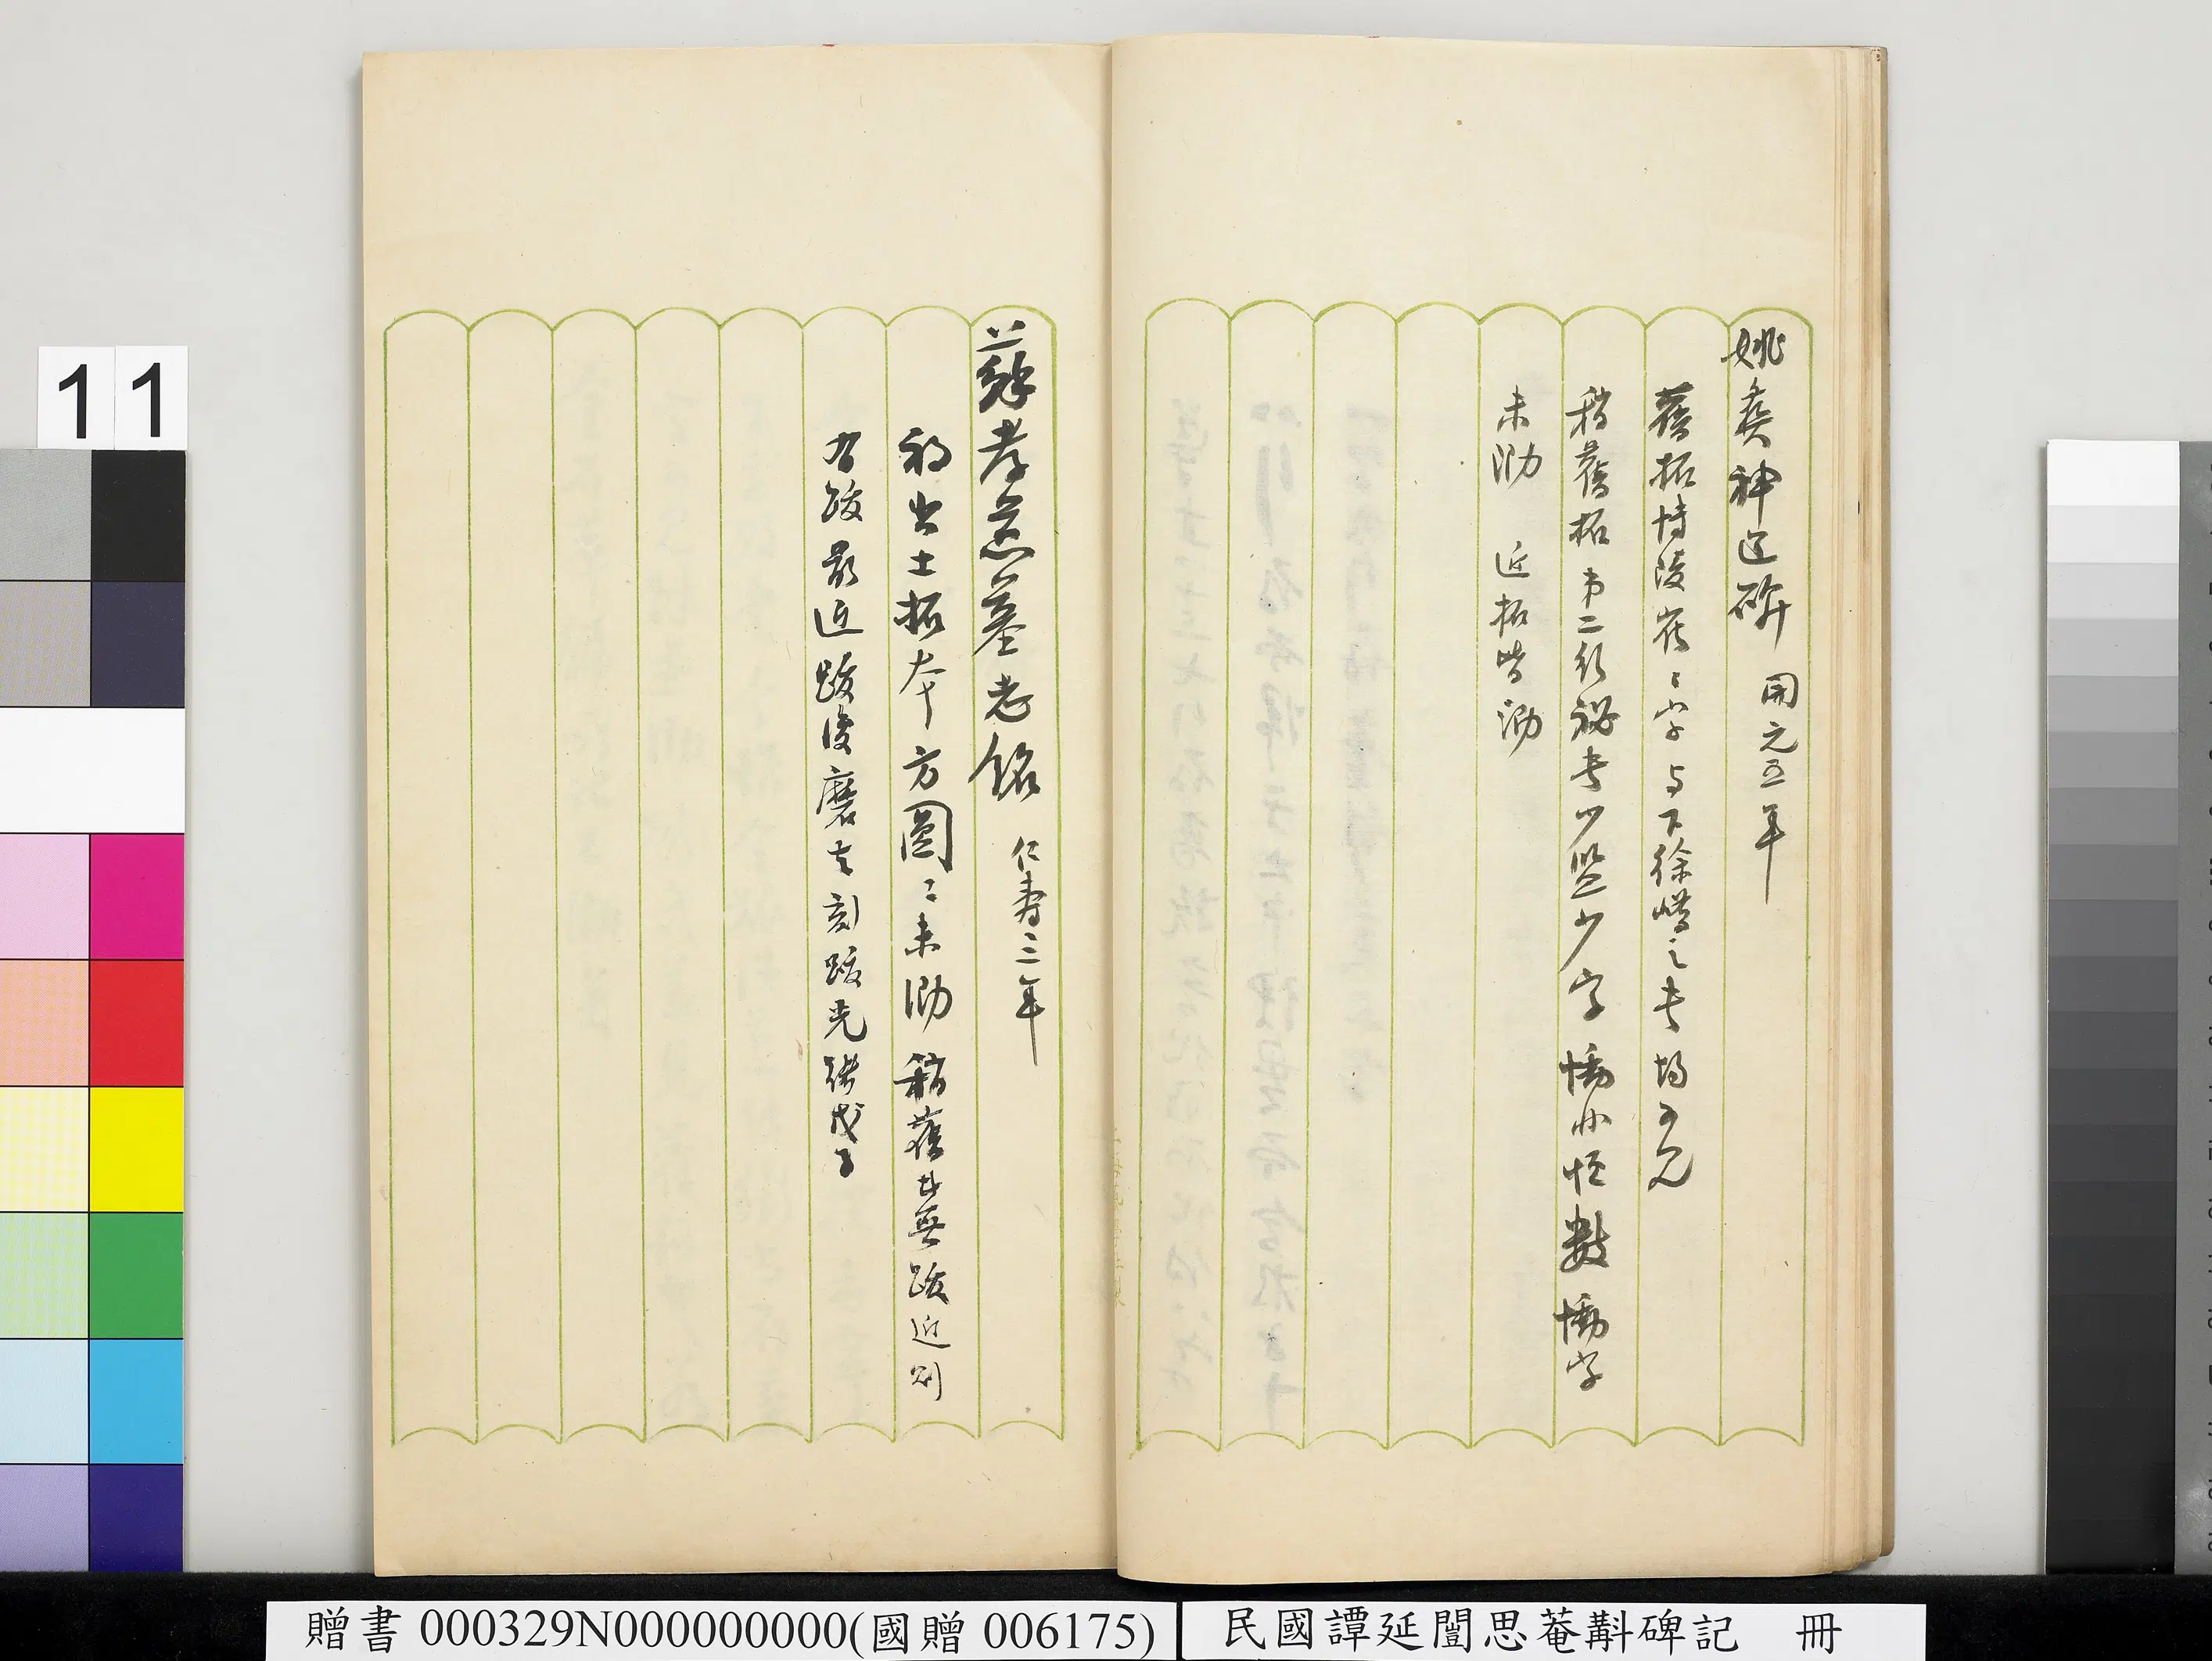 姚彝神道碑 開元五年
舊拓博陵崔㇌字与下徐嶠之書均可見
稍舊拓第二行祕書少監少字恸孙恒數恸字
未泐 近拓皆泐
蘇孝慈墓志銘 仁寿三年
初出土拓本方圓㇌未泐稍舊者無跋近則
有跋最近跋後磨去刻跋光緒戊子
11
贈書 000329N000000000(國贈 006175)
民國譚延闓思菴斠碑記 冊